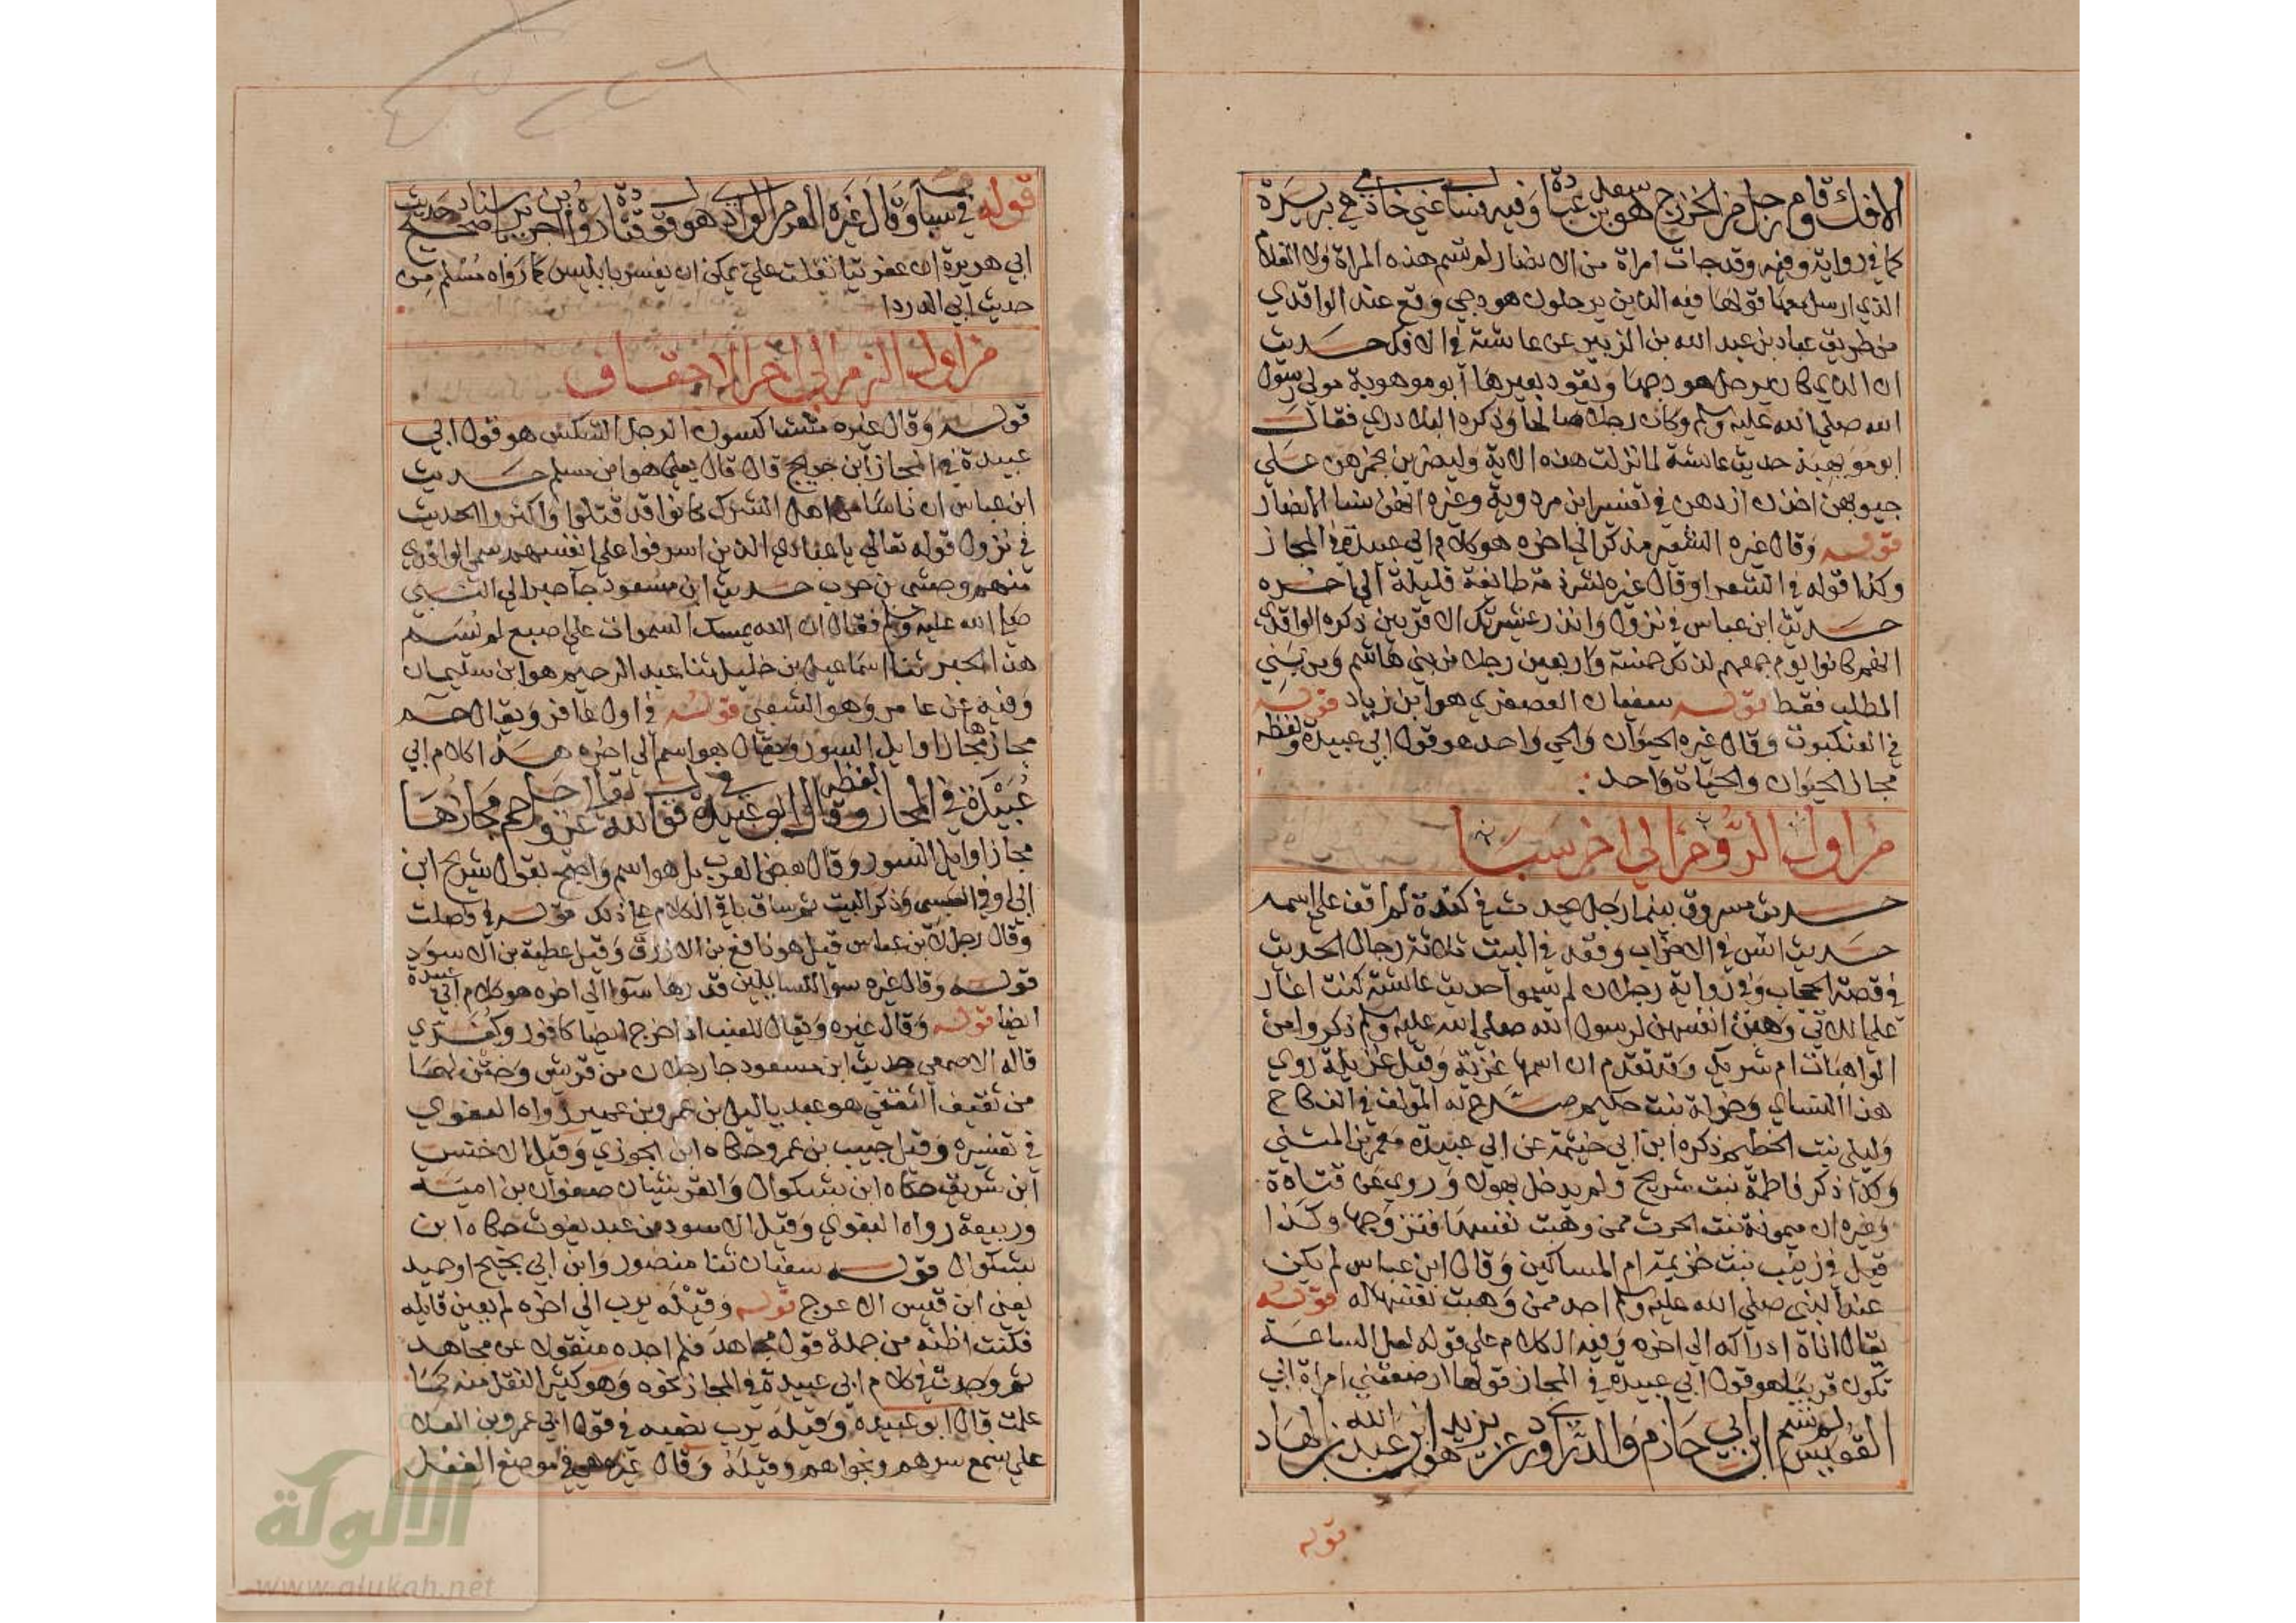 الافك وقام رجل من الخزرج هو سعد بن عبادة وفيه فسالني خادمي بريرة
كما في رواية وفيه وقد جات امراة من الانصار لم تسم هذه المراة ولا الغلام
الذي ارسل معها قولها فيه الذين يرحلون هودجي وقع عند الواقدي
من طريق عباد بن عبد الله بن الزبير عن عايشة في الافك حديث
ان الذي كان يرحل هودجها ويقود بعيرها ابو موهوبة مولي رسول
الله صلي الله عليه وسلم وكان رجلا صالحا وذكره البلاذري فقال
ابو مويهبة حديث عايشة لما نزلت هذه الاية وليضربن بخمرهن علي
جيوبهن اخذن ازرهن في تفسير ابن مردوية وغيره انهن نسا الانصار
قوله وقال غيره الشعر مذكر الي اخره هو كلام ابي عبيدة في المجاز
وكذا قوله في الشعرا وقال غيره لشرذمة طايفة قليلة الي اخره
حديث ابن عباس في نزول وانذر عشيرتك الاقربين ذكره الواقدي
انهم كانوا يوم جمعهم لذلك خمسة واربعين رجلا من بني هاشم وبن بني
المطلب فقط قوله سفيان العصفري هو ابن زياد قوله
في العنكبوت وقال غيره الحيوان والحي واحد هو قول ابي عبيدة ولفظه
مجاز الحيوان والحياة واحد
من اول الروم الي اخر سبا
حديث مسروق بينما رجل يحدث في كندة لم اقف علي اسمه
حديث انس في الاحزاب وقعد في البيت ثلاثة رجال الحديث
في قصة الحجاب وفي رواية رجلان لم يسموا حديث عايشة كنت اغار
علي اللاتي وهبن انفسهن لرسول الله صلي الله عليه وسلم ذكروا من
الواهبات ام شريك وقد تقدم ان اسمها غزية وقيل غزيلة روي
هذا النساي وخولة بنت حكيم صرح به المولف في النكاح
وليلي بنت الخطيم ذكره ابن ابي خيثمة عن ابي عبيدة معمر بن المثني
وكذا ذكر فاطمة بنت شريح ولم يدخل بهولا وروي عن قتادة
وغيره ان ميمونة بنت الحرث ممن وهبت نفسها فتزوجها وكذا
قيل في زينب بنت خزيمة ام المساكين وقال ابن عباس لم يكن
عند النبي صلي الله عليه وسلم احد ممن وهبت نفسها له قوله
يقال اناة ادراكه الي اخره وفيه الكلام علي قوله لعل الساعة
تكون قريبا هو قول ابي عبيدة في المجاز قولها ارضعتني امراة ابي
القعيس لم تسم ابن ابي حازم والدراوردي عن يزيد هو ابن عبد الله بن الهاد
قوله
قوله في سبا وقال غيره العرم الوادي هو قول قتادة رواه ابن جرير باسناد صحيح حديث
ابي هريرة ان عفريتا تفلت علي يمكن ان يفسر بابليس كما رواه مسلم من
حديث ابي الدردا
من اول الزمر الي اخر الاحقاف
قوله وقال غيره متشاكسون الرجل الشكس هو قول ابي
عبيدة في المجاز ابن جريج قال قال يعلي هو ابن مسلم حديث
ابن عباس ان ناسا من اهل الشرك كانوا قد قتلوا واكثروا الحديث
في نزول قوله تعالي يا عبادي الذين اسرفوا علي انفسهم سمي الواقدي
منهم وحشي بن حرب حديث ابن مسعود جا حبر الي النبي
صلي الله عليه وسلم فقال ان الله يمسك السموات علي اصبع لم يسم
هذا الحبر ثنا اسماعيل بن خليل ثنا عبد الرحيم هو ابن سليمان
وفيه عن عامر وهو الشعبي قوله في اول غافر ويقال حم
مجازها مجاز اوايل السور ويقال بل هو اسم الي اخره هذا كلام ابي
عبيدة في المجاز ولفظه وقال ابو عبيدة في قول الله تعالي عز وجل حم مجازها
مجاز اوايل السور وقال بعض العرب بل هو اسم واحتج بقول شريح ابن
ابي اوفي العبسي وذكر البيت ثم ساق باقي الكلام علي ذلك قوله في فصلت
وقال رجل لابن عباس قيل هو نافع بن الازرق وقيل عطية بن الاسود
قوله وقال غيره سوا للسايلين قدرها سوا الي اخره هو كلام ابي عبيدة
ايضا قوله وقال غيره ويقال للعنب اذا خرج ايضا كافور وكفري
قاله الاصمعي حديث ابن مسعود جا رجلان من قريش وختن لهما
من ثقيف الثقفي هو عبد ياليل بن عمرو بن عمير رواه البغوي
في تفسيره وقيل حبيب بن عمرو حكاه ابن الجوزي وقيل الاخنس
ابن شريق حكاه ابن بشكوال والقرشيان صفوان بن امية
وربيعة رواه البغوي وقيل الاسود بن عبد يغوث حكاه ابن
بشكوال قوله سفيان ثنا منصور وابن ابي نجيح او حميد
يعني ابن قيس الاعرج قوله وقيله يرب الي اخره لم يعين قايله
فكنت اظنه من جملة قول مجاهد فلم اجده منقولا عن مجاهد
ثم وجدت في كلام ابي عبيدة في المجاز نحوه وهو كثير النقل منه كما
علمت قال ابو عبيدة وقيله يرب نصبه في قول ابي عمرو بن العلا
علي يسمع سرهم ونجواهم وقيله وقال غيره هي في موضع الفعل
الألوكة
www.alukah.net